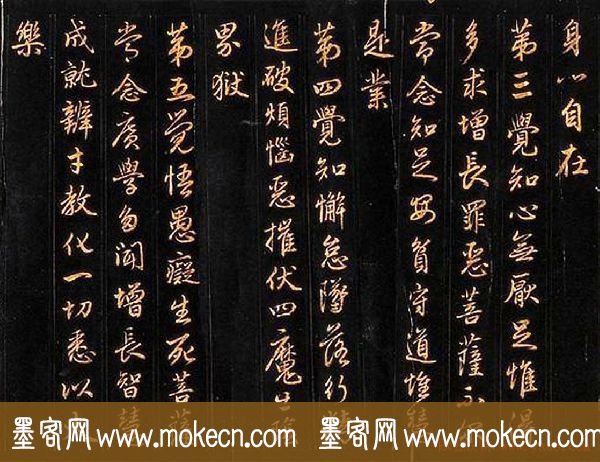 身心自在
第三覺知心無厭足惟得
多求增長罪惡菩薩不
常念知足安貧守道惟慧
是業
第四覺知懈怠墜落行精
進破煩惱惡摧伏四魔出陰
界獄
第五覺悟愚癡生死菩薩
常念廣學多聞增長智慧
成就辨才教化一切悉以大
樂
墨客网 www.mokecn.com 墨客网 www.mokecn.com